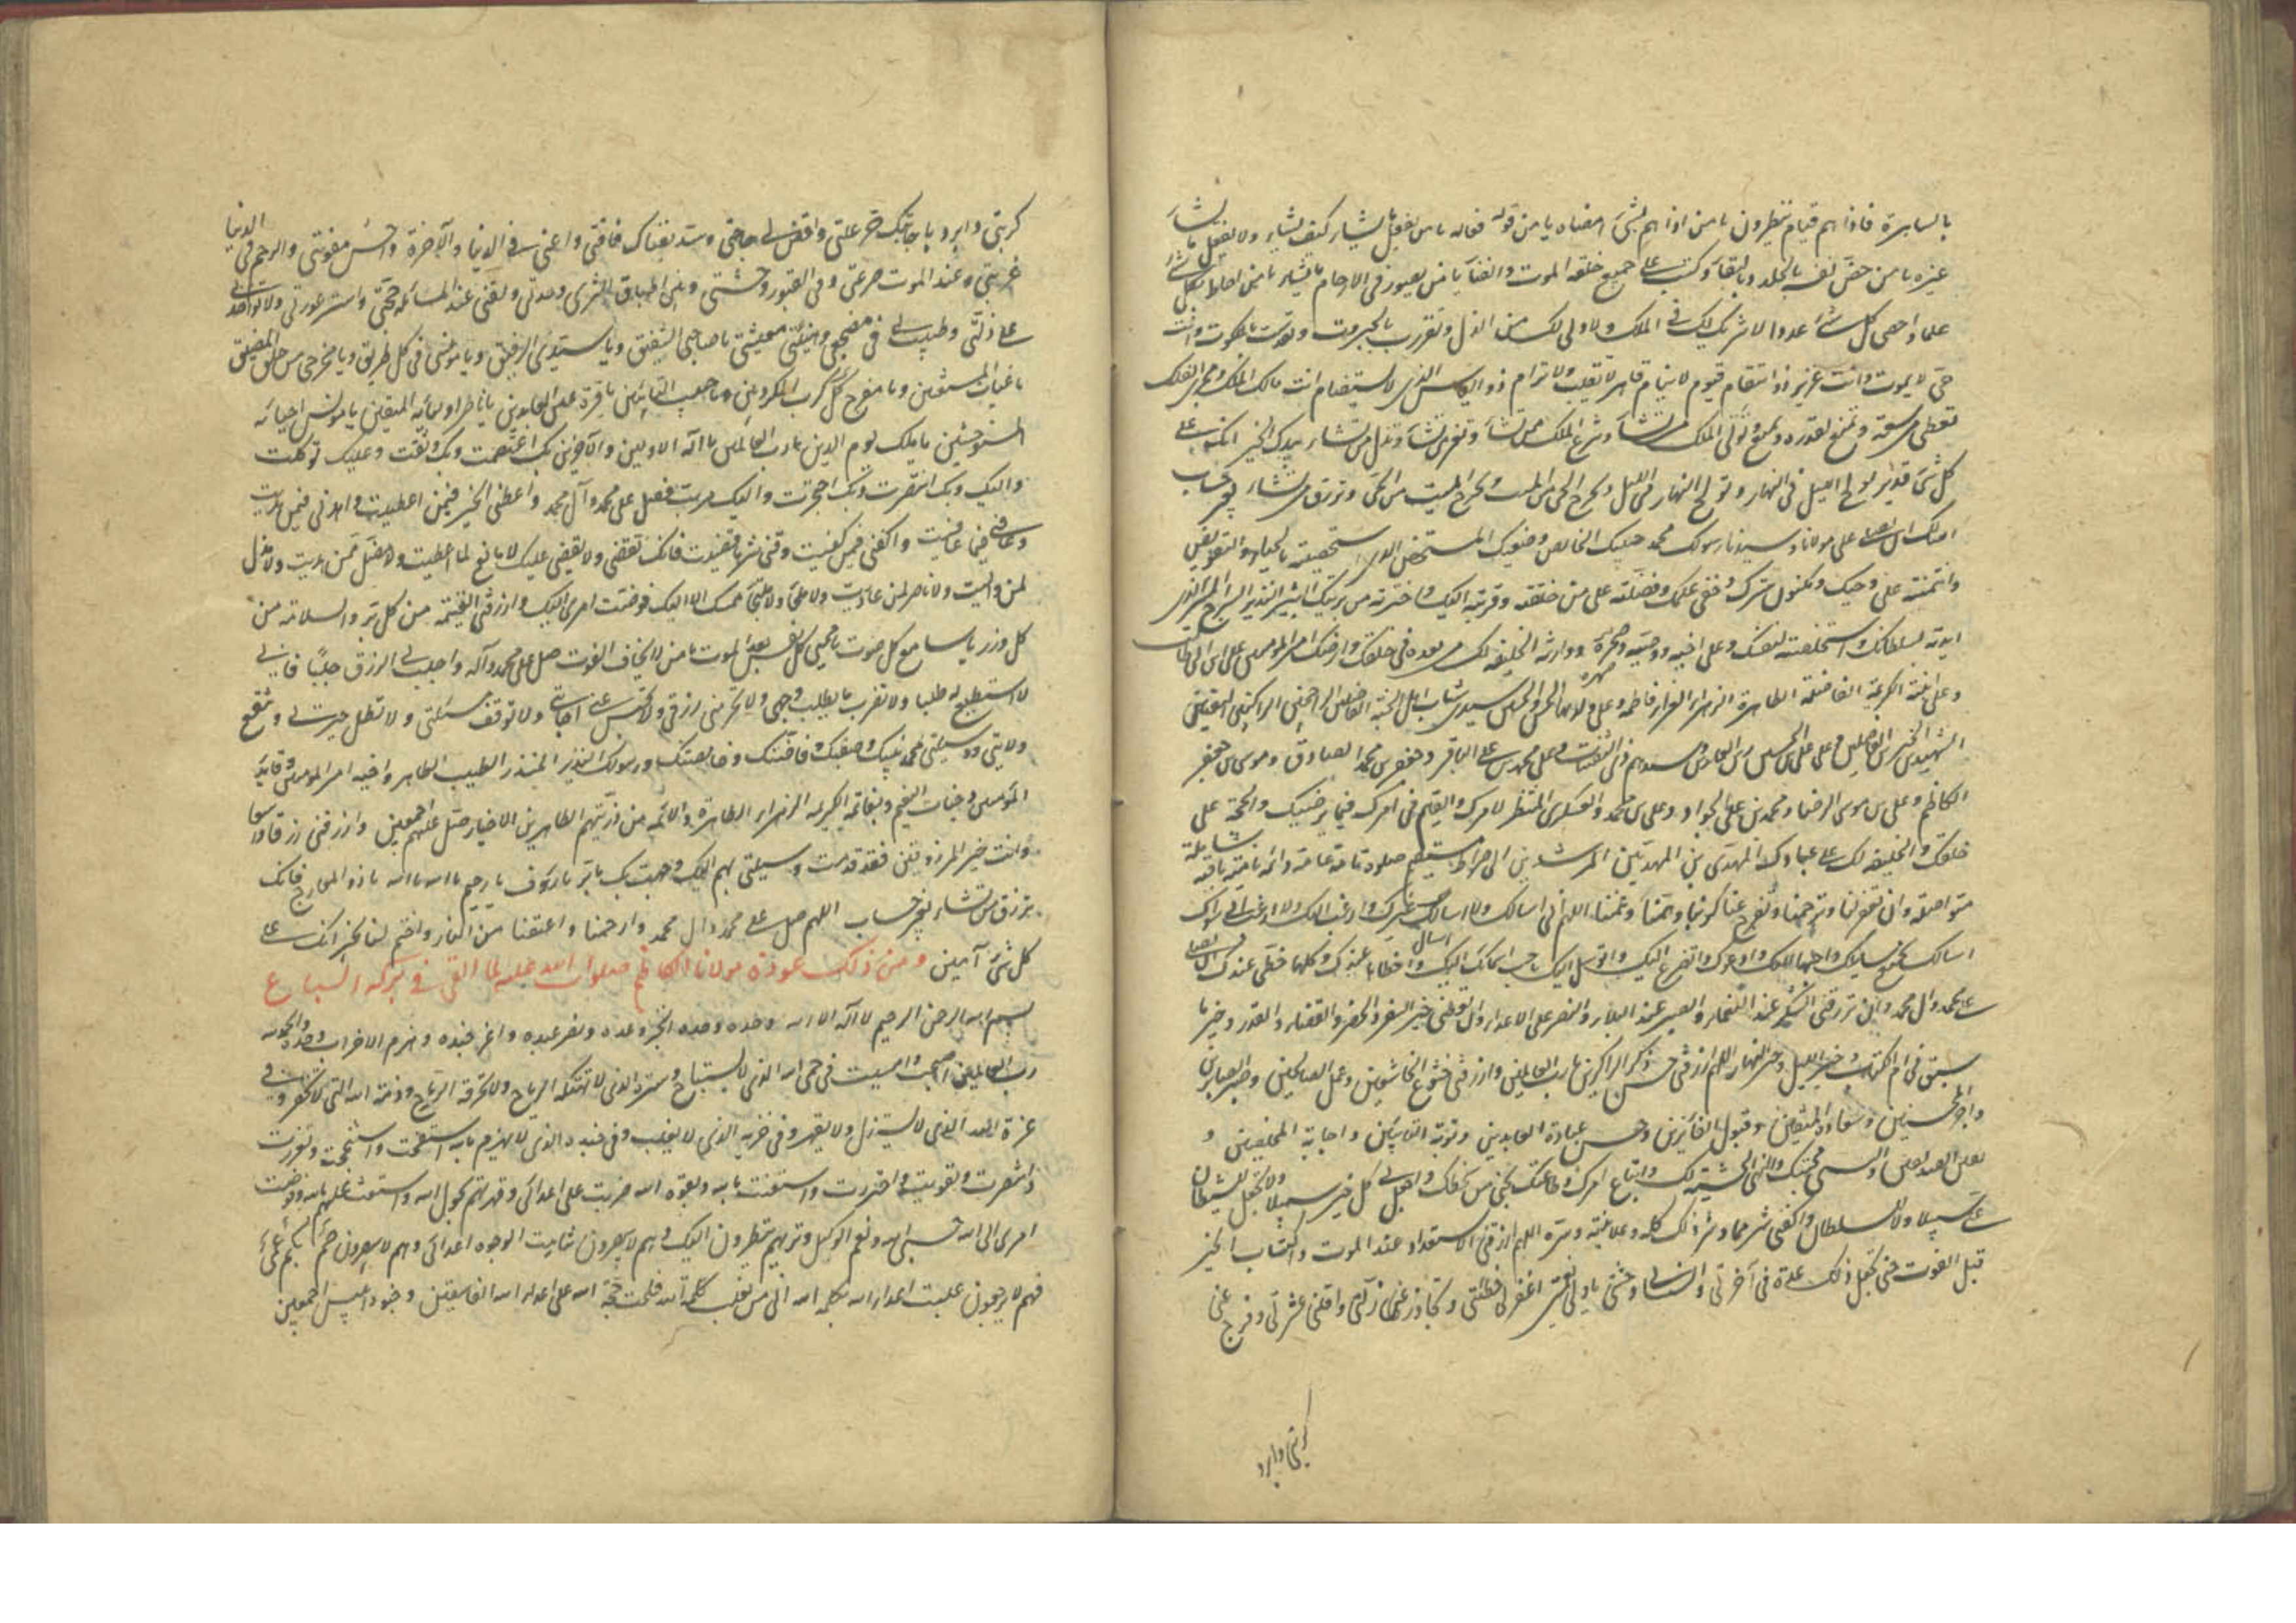 بالساهرة فاذا هم قيام ينظرون يا من اذا هم بشئ امضاه يا من قوله فعاله يا من يفعل ما يشاء كيف يشاء ولا يفعل ما يشاء
غيره يا من خص نفسه بالخلد والبقاء وكتب على جميع خلقه الموت والفناء يا من يصور في الارحام ما يشاء يا من احاط بكل شئ
علما واحصى كل شئ عددا لا شريك لك في الملك ولا ولي لك من الذل وتعززت بالجبروت وتقدست بالملكوت وانت
حي لا يموت وانت عزيز ذو انتقام قيوم لا ينام قاهر لا تغلب ولا ترام ذو الباس الذي لا يستضام انت مالك الملك ومجري الفلك
تعطي من سعة وتمنع بقدرة وتؤتي الملك من تشاء وتنزع الملك ممن تشاء وتعز من تشاء وتذل من تشاء بيدك الخير انك على
كل شئ قدير تولج الليل في النهار وتولج النهار في الليل وتخرج الحي من الميت وتخرج الميت من الحي وترزق من تشاء بغير حساب
اسالك ان تصلي على مولانا وسيدنا رسولك محمد حبيبك الخالص وصفيك المستخص الذي استخصصته بالحياة والتفويض
وائتمنته على وحيك ومكنون سرك وخفي علمك وفضلته على من خلقت وقربته اليك واخترته من بريتك البشير النذير السراج المنير الذي
ايدته بسلطانك واستخلصته لنفسك وعلى اخيه ووصيه وصهره ووارثه والخليفة لك من بعده في خلقك وارضك امير المؤمنين علي بن ابي طالب
وعلى ابنته الكريمة الفاضلة الطاهرة الزهراء الغراء فاطمة وعلى ولديهما الحسن والحسين سيدي شباب اهل الجنة الفاضلين الراجحين الزكيين التقيين
الشهيدين الخيرين الفاضلين وعلى علي بن الحسين زين العابدين وسيدهم ذي الثفنات وعلى محمد بن علي الباقر وجعفر بن محمد الصادق وموسى بن جعفر
الكاظم وعلي بن موسى الرضا ومحمد بن علي الجواد وعلي بن محمد والعسكري المنتظر لامرك والقائم في ارضك فيما يرضيك والحجة على
خلقك والخليفة لك على عبادك المهدي بن المهديين الرشيد بن المرشدين الى صراط مستقيم صلوة تامة عامة دائمة نامية باقية شاملة
متواصلة وان تغفر لنا وترحمنا وتفرج عنا كربنا وهمنا وغمنا اللهم اني اسالك ولا اسال غيرك وارغب اليك ولا ارغب الى سواك
اسالك بجميع مسايلك واحبها اليك وادعوك واتضرع اليك واتوسل اليك باحب اسمائك اليك واحظاها عندك وكلها حظي عندك ان تصلي
على محمد وال محمد وان ترزقني الشكر عند النعماء والصبر عند البلاء والنصر على الاعداء وان تعطيني خير السفر والحضر والقضاء والقدر وخير ما
سبق في ام الكتاب وخير الليل وخير النهار اللهم ارزقني حسن ذكر الذاكرين يا رب العالمين وارزقني خشوع الخاشعين وعمل الصالحين وصبر الصابرين
واجر المحسنين وسعادة المتقين وقبول الفائزين وحسن عبادة العابدين وتوبة التائبين واجابة المخلصين و
يقين الصديقين والبسني محبتك والهمني الخشية لك واتباع امرك وطاعتك نجني من سخطك واجعل لي الى كل خير سبيلا ولا تجعل للشيطان
علي سبيلا ولا للسلطان واكفني شرهما وشر ذلك كله وعلانيته وسره اللهم ارزقني الاستعداد عند الموت واكتساب الخير
قبل الفوت حتى تجعل ذلك عدة في آخرتي وانسا لي في وحشتي يا ولي نعمتي اغفر لي خطيئتي وتجاوز عن زلتي واقلني عثرتي وفرج عني
كربتي وابرد
كربتي وابرد باجابتك حر غلتي واقض لي حاجتي وسد بغناك فاقتي واعني في الدنيا والآخرة واحسن معونتي وارحم في الدنيا
غربتي وعند الموت صرعتي وفي القبور وحشتي وبين اطباق الثرى وحدتي ولقني عند المسائلة حجتي واستر عورتي ولا تؤاخذني
على زلتي وطيب لي في مضجعي وهنئني معيشتي يا صاحبي الشفيق ويا سيدي الرفيق ويا مونسي في كل طريق ويا مخرجي من حلق المضيق
يا غياث المستغيثين ويا مفرج كرب المكروبين ويا حبيب التائبين يا قرة عين العابدين يا ناصر اوليائه المتقين يا مونس احبائه
المستوحشين يا ملك يوم الدين يا رب العالمين يا اله الاولين والآخرين بك اعتصمت وبك وثقت وعليك توكلت
واليك وبك انتصرت وبك احتجزت واليك هربت فصل على محمد وآل محمد واعطني الخير فيمن اعطيت واهدني فيمن هديت
وعافني فيمن عافيت واكفني فيمن كفيت وقني شر ما قضيت فانك تقضي ولا يقضى عليك لا مانع لما اعطيت ولا مضل لمن هديت ولا مذل
لمن واليت ولا ناصر لمن عاديت ولا ملجا ولا ملتجأ منك الا اليك فوضت امري اليك وارزقني الغنيمة من كل بر والسلامة من
كل وزر يا سامع كل صوت يا محيي كل نفس بعد الموت يا من لا يخاف الفوت صل على محمد وآله واجلب لي الرزق جلبا فاني
لا استطيع له طلبا ولا تضرب بالطلب وجهي ولا تحرمني رزقي ولا تحبس عني اجابتي ولا توقف مسئلتي ولا تطل حيرتي وشفع
ولايتي ووسيلتي بمحمد نبيك وصفيك وخاصتك وخالصتك ورسولك النذير المنذر الطيب الطاهر واخيه امير المؤمنين وقائد
المؤمنين الى جنات النعيم وبفاطمة الكريمة الزهراء الطاهرة والائمة من ذريتهم الطاهرين الاخيار صل عليهم اجمعين وارزقني رزقا واسعا
وانت خير الرازقين فقد قدمت وسيلتي بهم اليك وتوجهت بك يا بر يا رؤف يا رحيم يا الله يا الله يا ذا المعارج فانك
ترزق من تشاء بغير حساب اللهم صل على محمد وال محمد وارحمنا واعتقنا من النار واختم لنا بخير انك على
كل شئ آمين ومن ذلك عوذة مولانا الكاظم صلوات الله عليه لما القي في بركة السباع
بسم الله الرحمن الرحيم لا اله الا الله وحده وحده انجز وعده ونصر عبده واعز جنده وهزم الاحزاب وحده والحمد لله
رب العالمين اصبحت وامسيت في حمى الله الذي لا يستباح وستره الذي لا تهتكه الرياح ولا تخرقه الرماح وذمة الله التي لا تخفر وفي
عزة الله الذي لا يستذل ولا يقهر وفي حزبه الذي لا يغلب وفي جنده الذي لا يهزم بالله استفتحت واستنجحت وتعززت
وانتصرت وتقويت واحترزت واستعنت بالله وبقوة الله ضربت على اعدائي وقهرتهم بحول الله واستعنت عليهم بالله وفوضت
امري الى الله حسبي الله ونعم الوكيل وتريهم ينظرون اليك وهم لا يبصرون شاهت الوجوه اعدائي وهم لا يبصرون صم بكم عمي
فهم لا يرجعون غلبت اعداء الله بكلمة الله اني من يغلب كلمة الله فلجت حجة الله على اعداء الله الفاسقين وجنود ابليس اجمعين